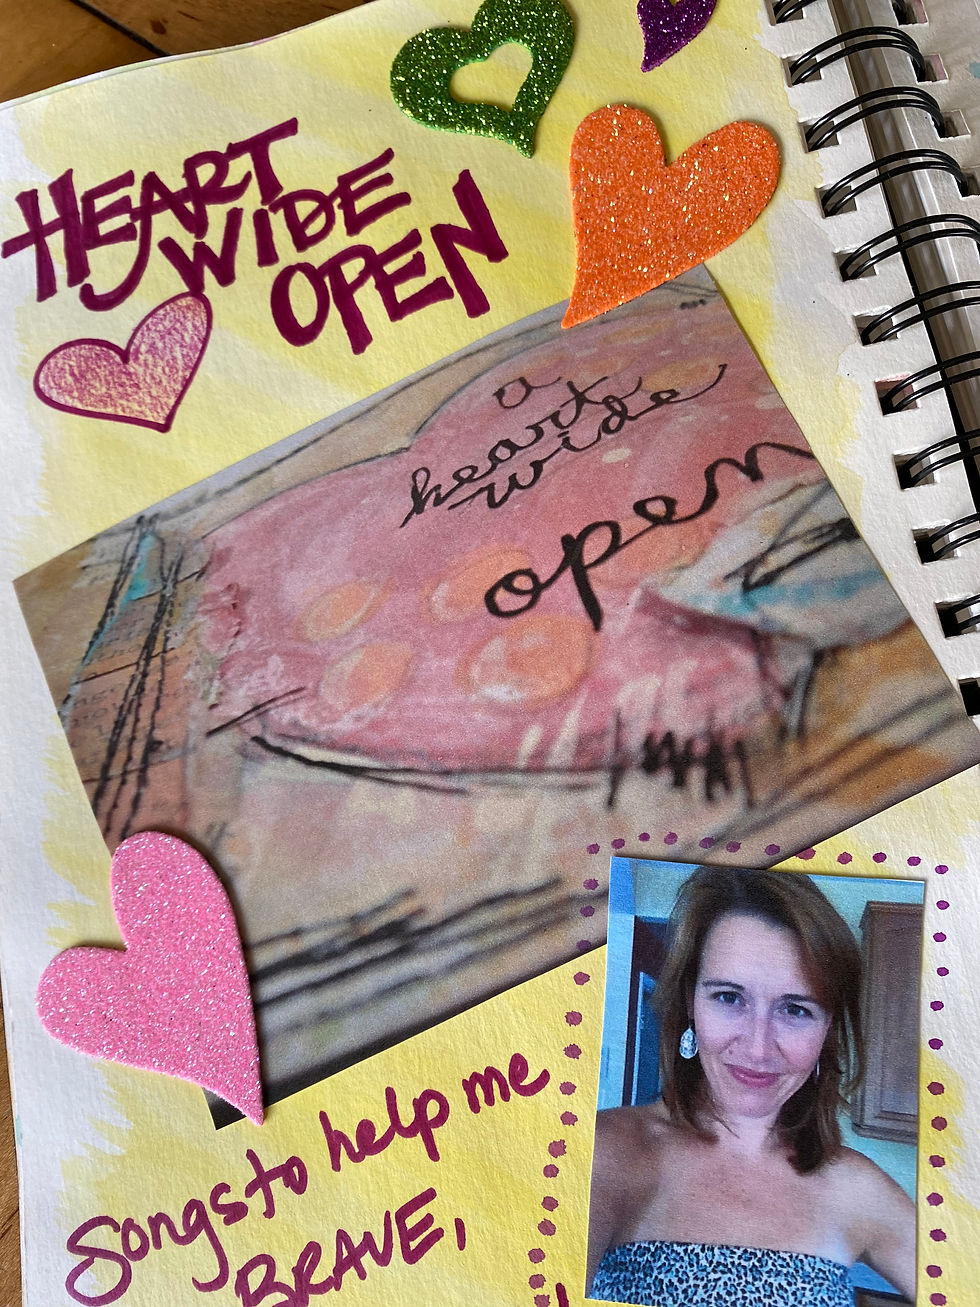 HEART
WIDE
OPEN
a
heart
wide
open
Songs to help me
BRAVE,